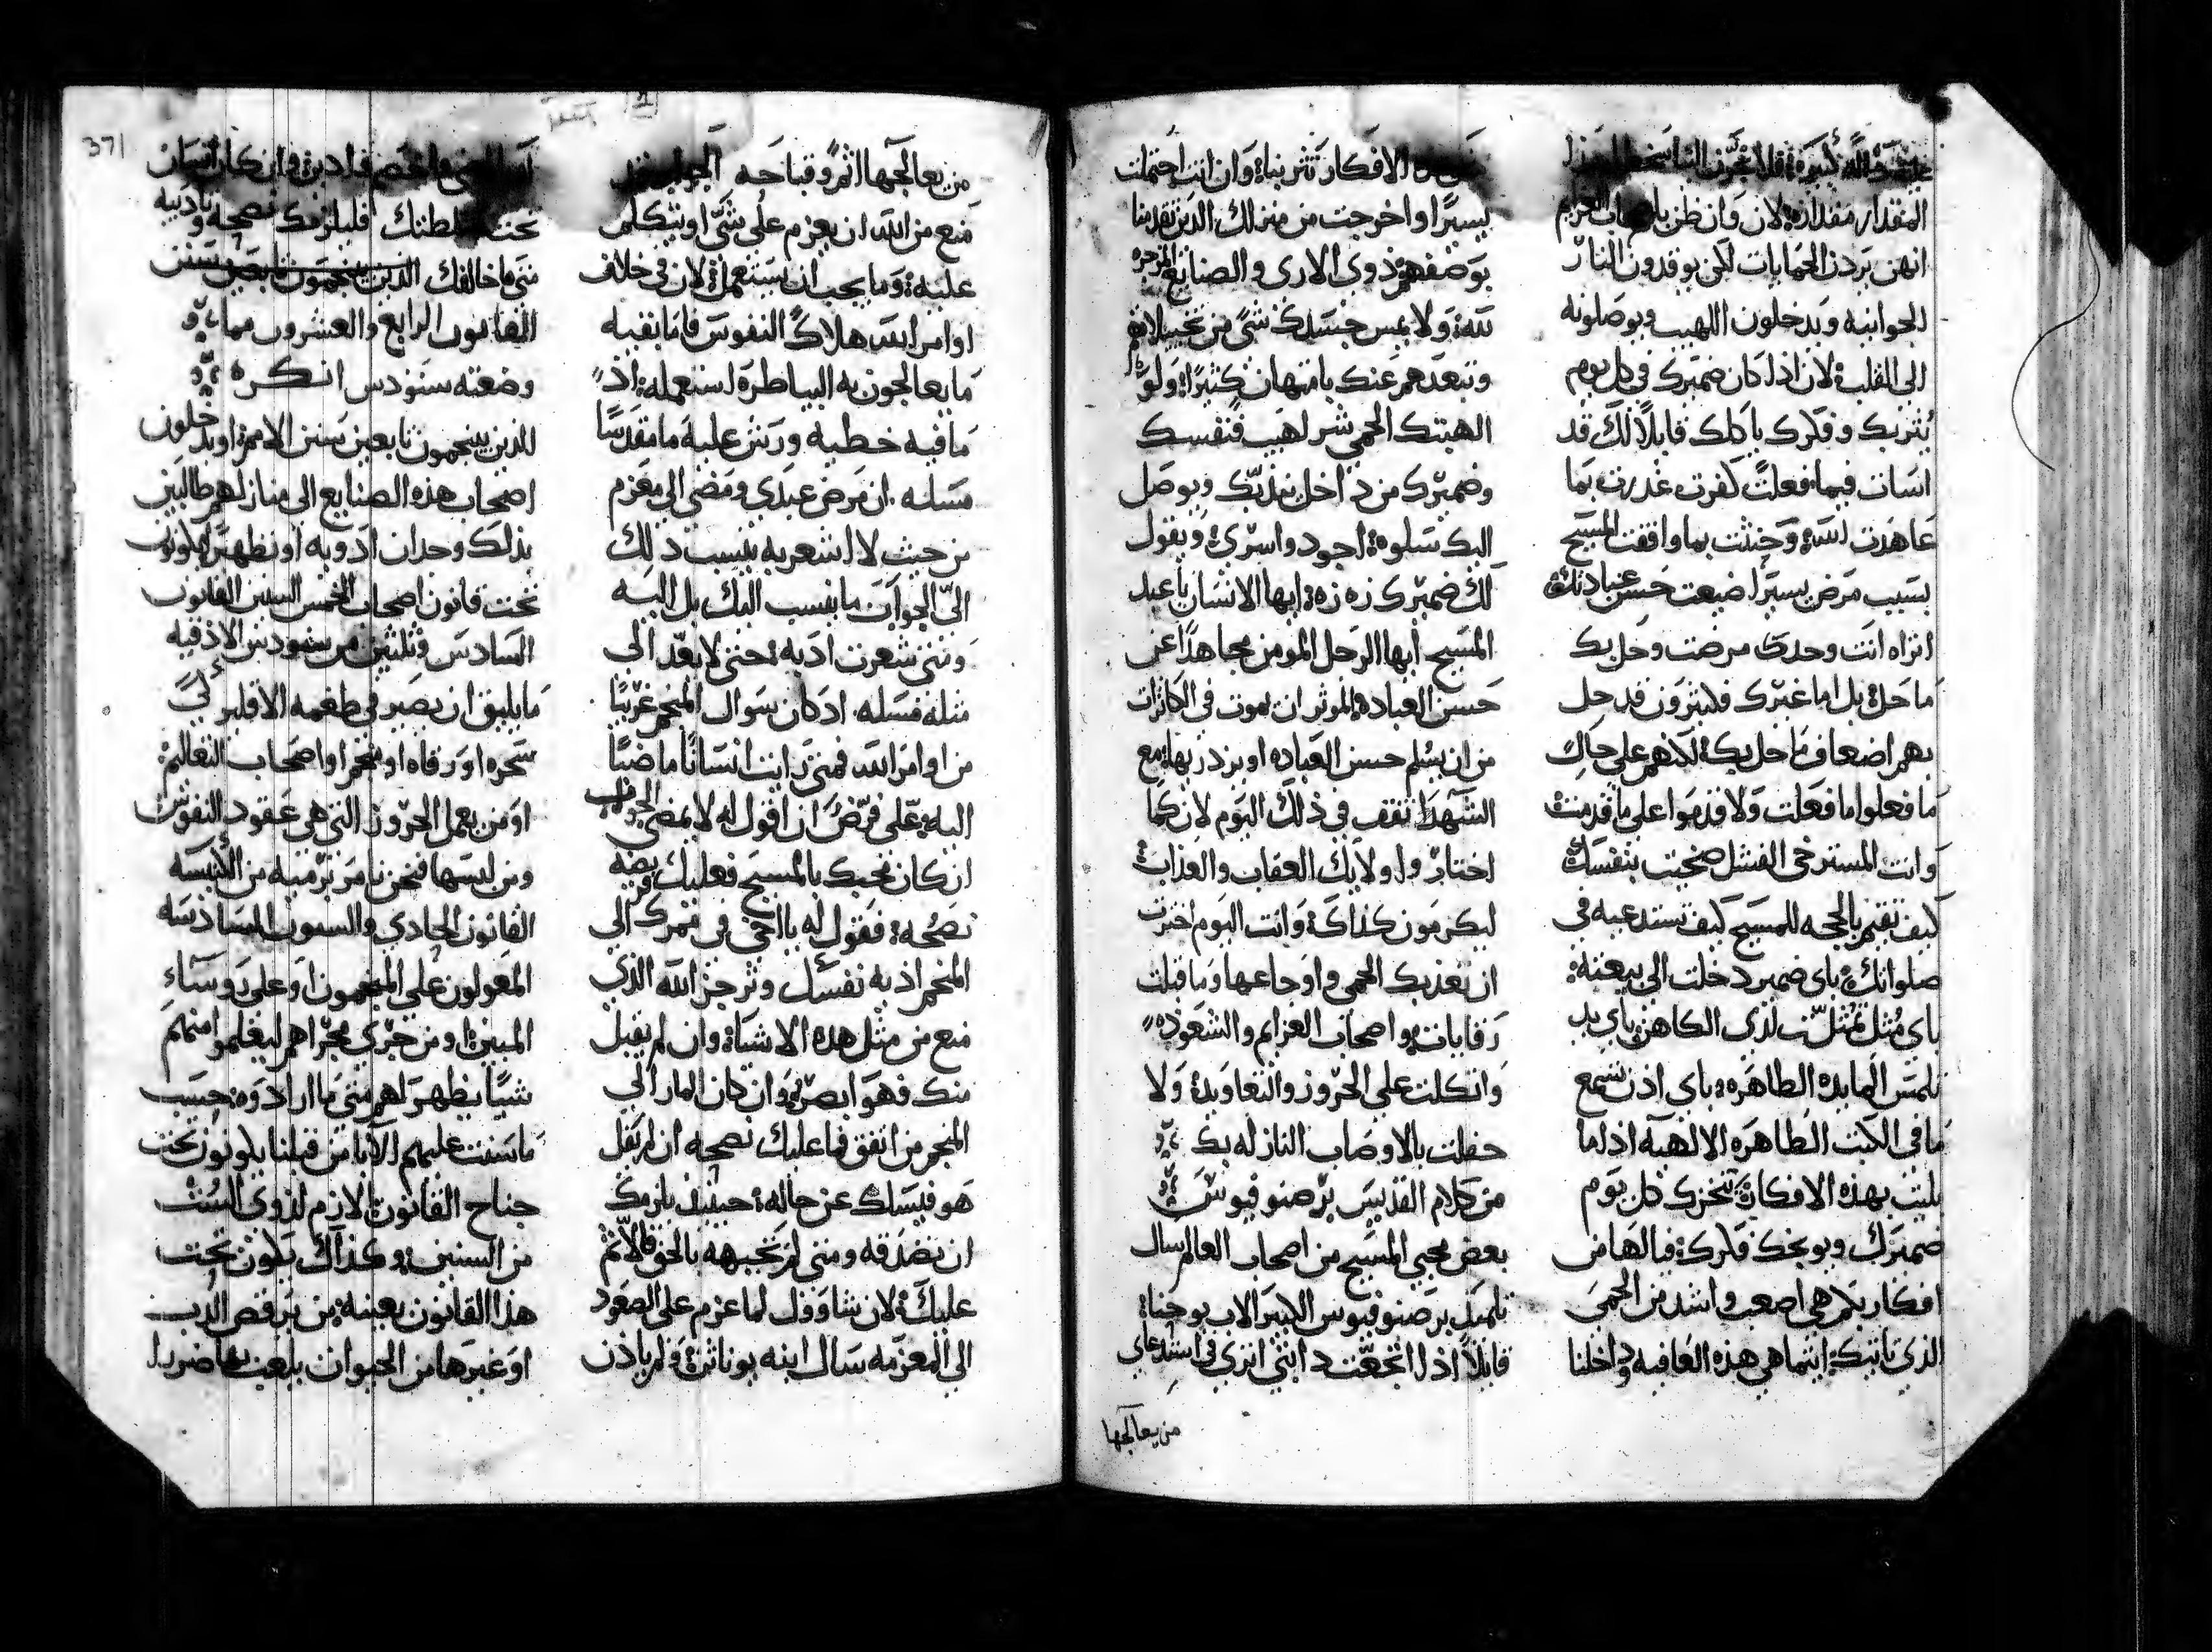 المقدار مقداره لان وان ظن باصحاب العزايم
انهن يردن الحمايات لكن يوقدون النار
الجوانيه ويدخلون اللهيب ويوصلونه
الى القلب لان اذا كان ضميرك في كل يوم
يثربك وفكرك ياكلك قايلا لك قد
اسات فيما فعلت كفرت غدرت بما
عاهدت الله وحنثت بما وافقت المسيح
بسبب مرض يسير اضيعت حسن عبادتك
اتراه انت وحدك مرضت وحل بك
ما حل بل اما غيرك فليترون قد حل
بهم اضعاف ما حل بك لكنهم على حال
ما فعلوا ما فعلت ولا قدموا على ما قدمت
وانت المسترخى الفشل ضحيت بنفسك
كيف تقيم بالحجه للمسيح كيف تستدعيه في
صلواتك باى ضمير دخلت الى بيعته
باي مثل تمثل لدى الكاهن باي يد
تلمس المايده الطاهره باى اذن تسمع
ما في الكتب الطاهره الالهيه اذا ما
بليت بهذه الافكار ينخزك كل يوم
ضميرك ويوبخك فكرك فيالها من
افكار بكم هي اصعب واشد من الحمى
الذي تاتيك ايتما هي هذه العافيه وداخلنا
الافكار تثربناه وان انت احتملت
يسيرا واخرجت من منزلك الذين تقدمنا
بوصفهم ذوى الارى والصنايع
لله ولا يمس جسدك شي من تخييلاته
وتبعدهم عنك بامتهان كثيرا ولو
الهبتك الحمي شر لهيب فنفسك
وضميرك من داخل يهديك ويوصل
اليك سلوه اجود واسرى ويقول
لك ضميرك زه زه ايها الانسان يا عبد
المسيح ايها الرجل المومن مجاهدا عن
حسن العباده الموثر ان يموت في الكاينات
من ان يسلم حسن العباده او يزدريها مع
الشهدا تقف في ذلك اليوم لان كما
اختار
ليكرمون كذاك وانت اليوم اخترت
ان تعذبك الحمى واوجاعها وما قبلت
رقايات واصحاب العزايم والشعوذه
واتكلت على الحروز والتعاويذ ولا
حفلت بالاوصاب النازله بك
من كلام القديس برصنوفيوس
بعض محبي المسيح من اصحاب العالم سال
تلميذ برصنوفيوس الكبير الاب يوحنا
قايلا اذا اتجعت دابتي اترى في استدعاي
من يعالجها
من يعالجها اثم وقباحه الجواب
منع من الله ان يعزم على شي او يتكلم
عليه وما يجب ان يستعمل لان في خلاف
اوامر الله هلاك النفوس فاما بقيه
ما يعالجون به البياطره استعمله اذ
ما فيه خطيه ورش عليه ما مقدسا
مسله ان مرض عبدي ومضى الى معزم
من حيث لا اشعر به ينسب ذلك
الي الجواب ما ينسب اليك بل اليه
ومتى شعرت ادبه حتى لا يعد الى
مثله مسله اد كان سوال المنجم غريبا
من اوامر الله فمتى رايت انسانا ماضيا
اليه على فرض ان اقول له لا يمضي الجواب
ان كان محبك بالمسيح فعليك فريضه
نصحه فقول له يا اخي في ممرك الى
المنجم اذيه نفسك وترجز الله الذي
منع من مثل هذه الاشياء وان لم يقبل
منك فهو ابصر وان كان المار الى
المنجم من اتفق فما عليك نصحه ان لم يقل
هو فيسلك عن حاله حينيذ يلزمك
ان تصدقه ومتى لم تجيبه بالحق فالاثم
عليك لان شاوول لما عزم على الصعود
الى المعزمه سال ابنه يوناثن ولم ياذن
تحت سلطتك فليلزمك نصحه وتاديبه
متى ما خالفك الذين ينجمون تابعين سنن
القانون الرابع والعشرون مما
وضعته سنودس انكره
للذين ينجمون تابعين سنن الامم او يدخلون
اصحاب هذه الصنايع الى منازلهم طالبين
بذلك وجدان ادويه او تطهير يكونون
تحت قانون اصحاب الخمس السنين القانون
السادس وثلثين من سنودس الاذقيه
ما يليق ان يصير في طغمه الاقليركي
سحره او رقاه او منجم او اصحاب التعاليم
او من يعمل الحروز التي هي عقود النفوس
ومن لبسها فنحن نامر برميه من الكنيسه
القانون الحادي والستون للسادسه
المعولون على المنجمون او على روساء
المبين او من جرى مجراهم ليعلموا منهم
شيا يظهر لهم متى ما ارادوه حسب
ما سنت عليهم الابا من قبلنا يكونون تحت
جناح القانون الازم لذوي الست
من السنين وكذاك يكون تحت
هذا القانون بعينه من يرقص الدب
او غيرها من الحيوان يلعب بها ضررا
371